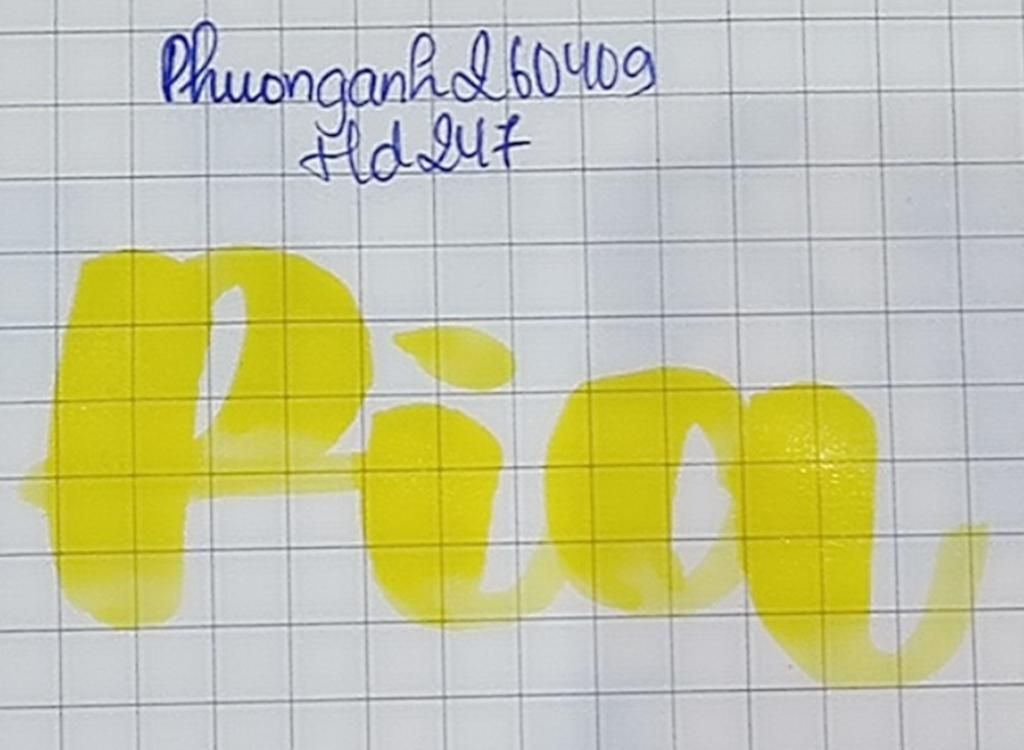 Phuonganh260409
Hd247
Pia